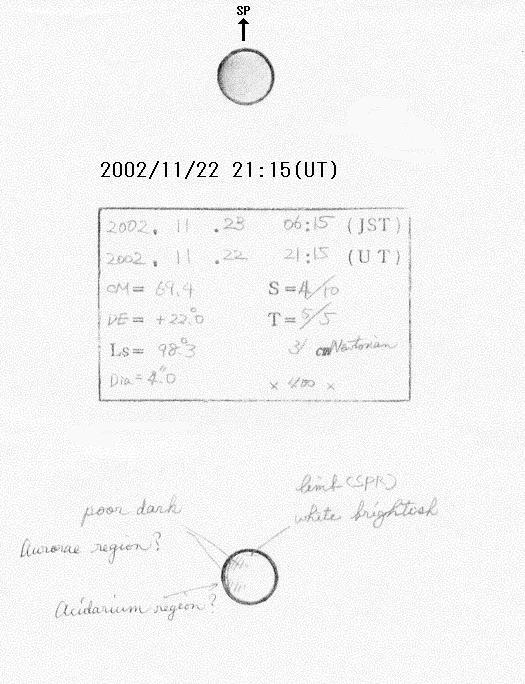 SP
2002/11/22 21:15(UT)
2002. 11 .23 06:15 (JST)
2002. 11 .22 21:15 (UT)
CM= 69.4 S=4/10
DE= +22.°0 T=5/5
Ls= 98.°3 31 cm Newtonian
Dia=4."0 × 400 ×
limb (SPR)
white brightish
poor dark
Aurorae region?
Acidarium region?